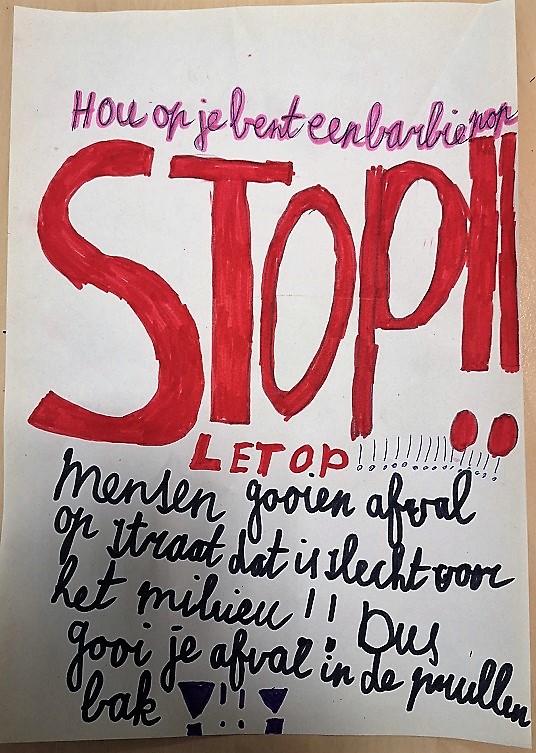 Hou op je bent een barbiepop
STOP!!
LET OP !!!!!!!!!!!!!!!
Mensen gooien afval
op straat dat is slecht voor
het milieu !! Dus
gooi je afval in de prullen
bak !!!!